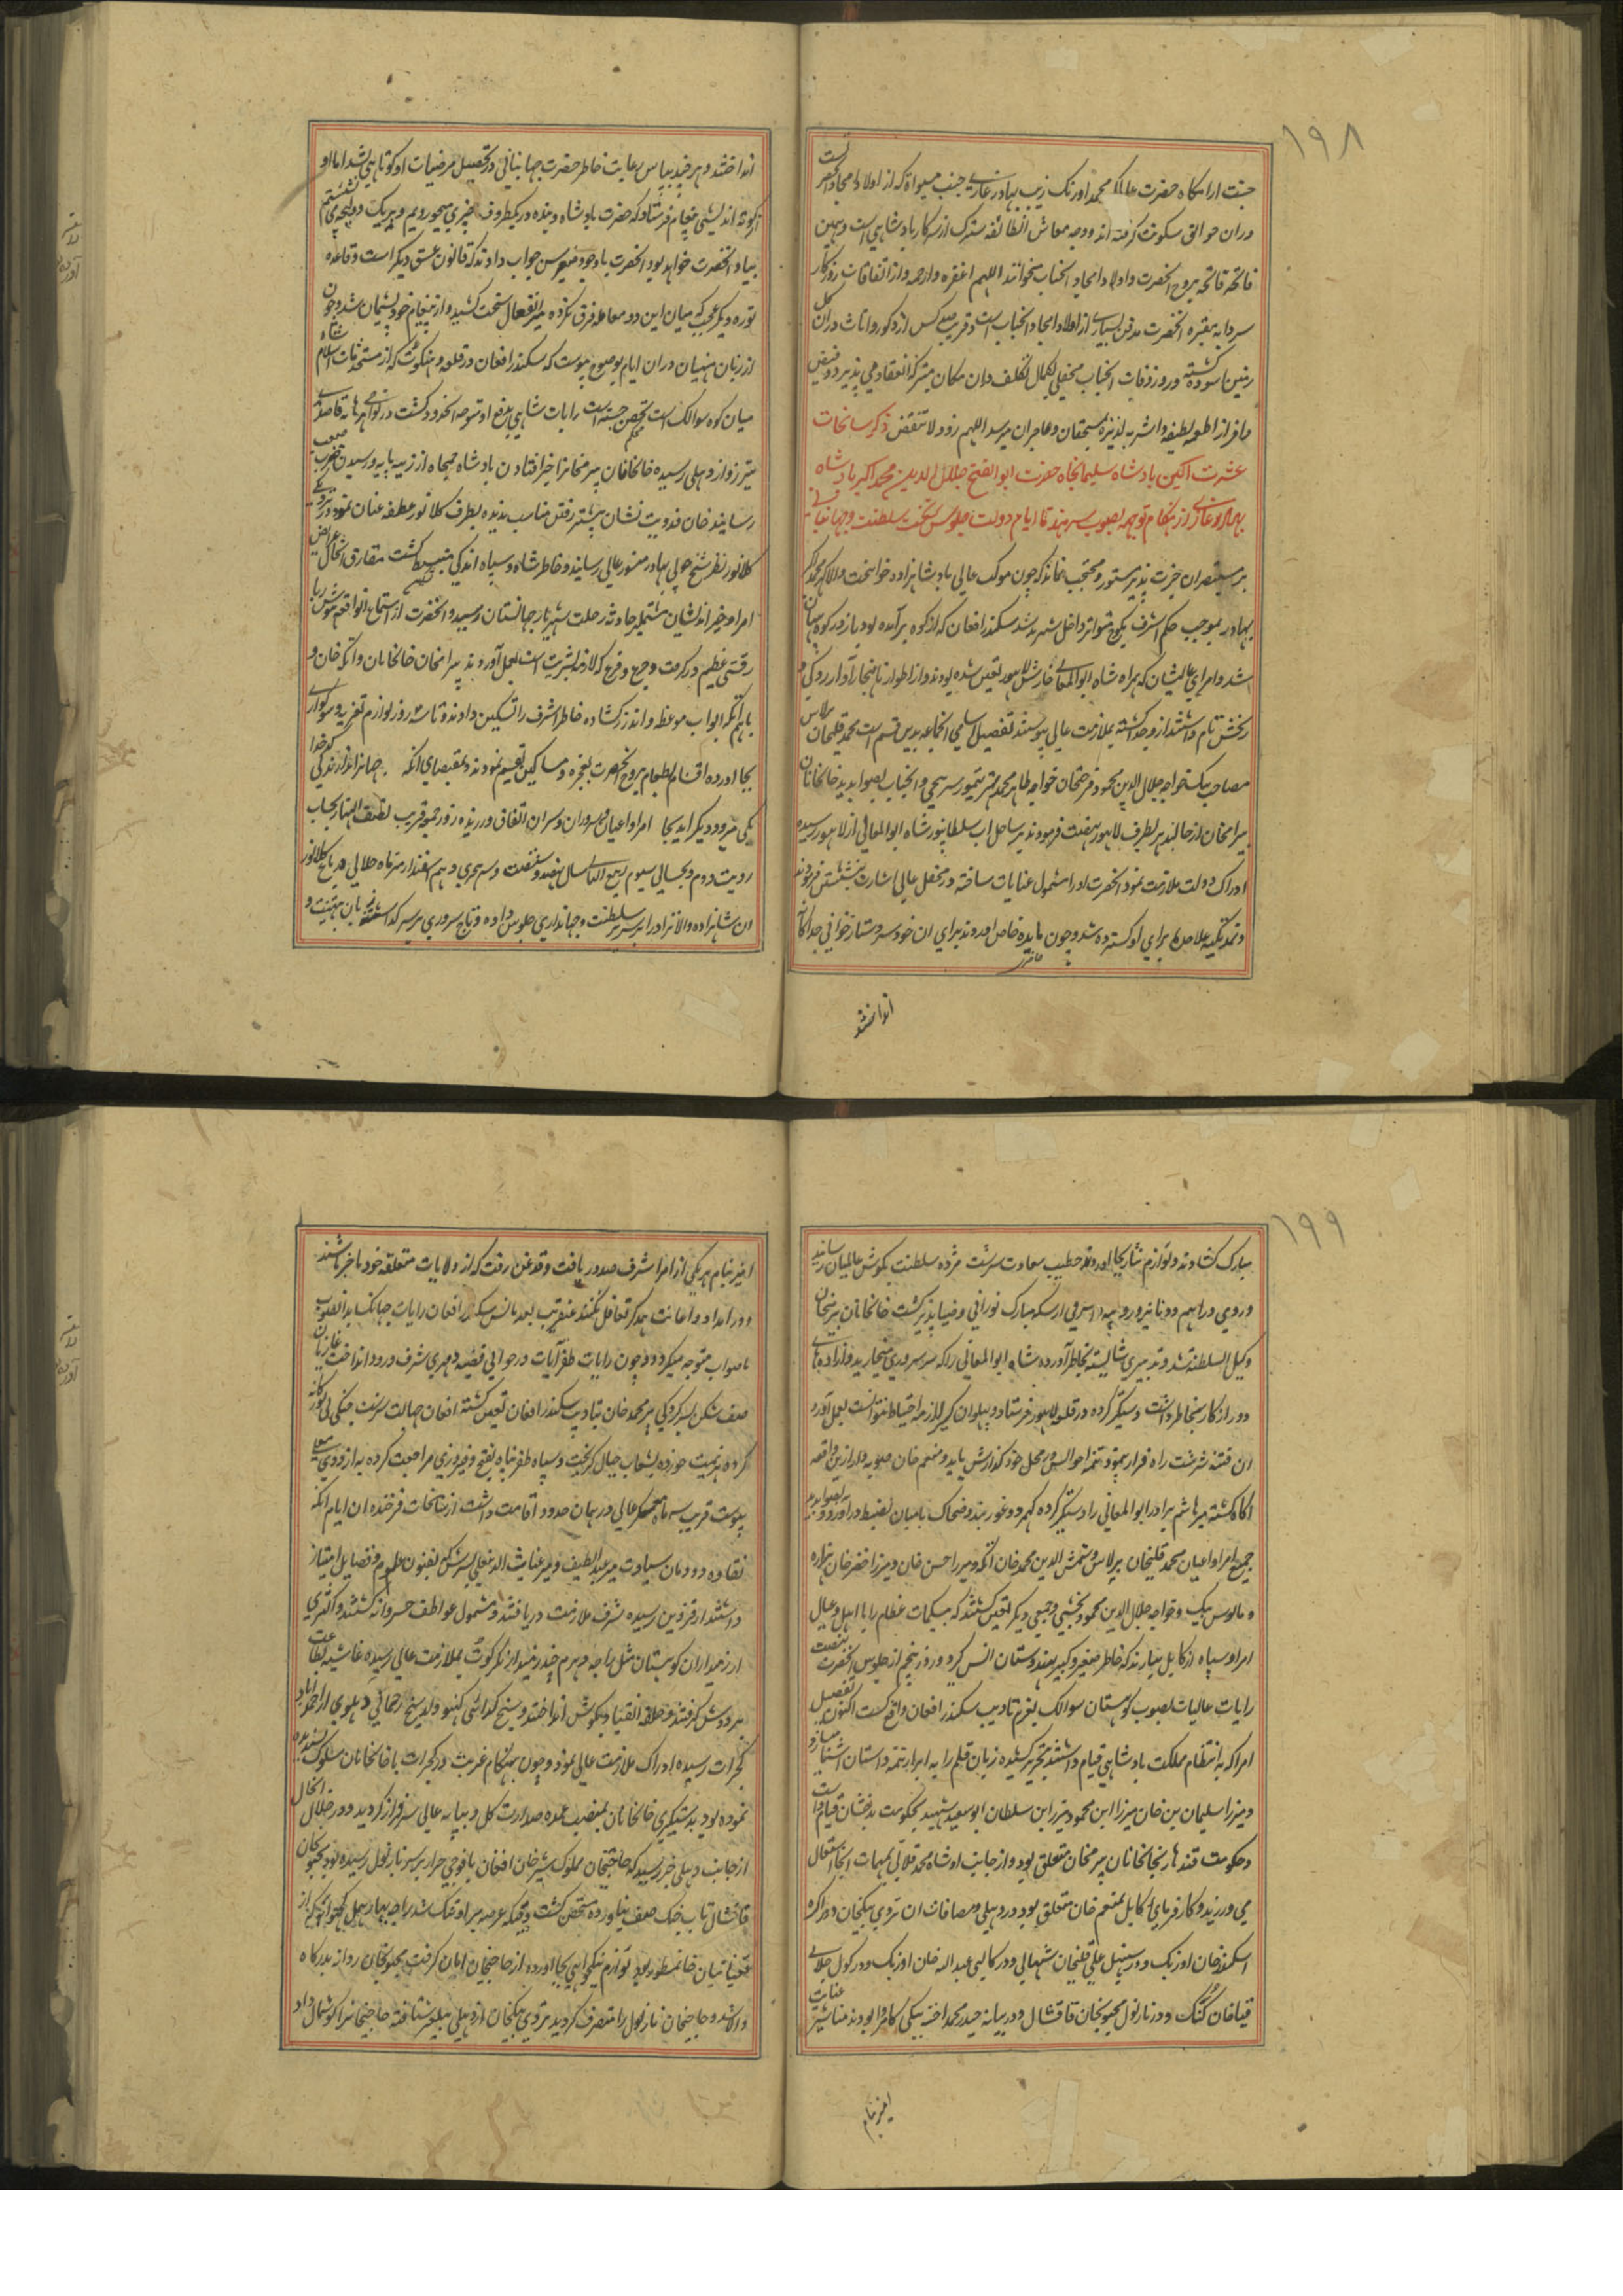 ۱۹۸
جنت ارامکاه حضرت عالمکیر محمد اورنک زیب بهادر غازی
دران حوالی سکونت گرفته اند و وجه معاش انطائفه سترک از سرکار بادشاهی است و بهمین
فاتحه فاتحه بروح انحضرت و اولاد امجاد انجناب میخوانند اللهم اغفره وارحمه و از اتفاقات روزکار
سردابه مقبره انحضرت مدفن بسیاری از اولاد امجاد انجناب است و قریب صد کس از ذکور و اناث دران
زمین اسوده کشته و روز وفات انجناب محفلی بکمال تکلف دران مکان متبرکه انعقاد می پذیرد و فیض
وافر از اطعمه لطیفه و اشربه لذیذه بمستحقان و عاجزان میرسد اللهم زد و لا تنقص ذکر سانحات
عشرت اکین بادشاه سلیمانجاه حضرت ابوالفتح جلال الدین محمد اکبر بادشاه
بهادر غازی از هنکام توجه بصوب سهرند تا ایام دولت جلوس بتخت سلطنت و جهانبانی
بر مستبصران خبرت پذیر مستور و محتجب نماند که چون موکب عالی بادشاهزاده جوانبخت والا کهر محمد اکبر
بهادر بموجب حکم اشرف بکوچ متواتر داخل سهرند شد سکندر افغان که از کوه برآمده بود باز در کوه پنهان
شد و امرای عالیشان که همراه شاه ابوالمعالی بلاهور تعین شده بودند و از اطوار ناهنجار او ازردکی و
رنجش تام داشتند از وجدا کشته بملازمت عالی پیوستند تفصیل اسامی انجماعه بدین قسم است محمد قلیخان برلاس
مصاحب بیک خواجه جلال الدین محمود فرحتخان خواجه طاهر محمد میر تیمور سرمچی و انجناب بصوابدید خانخانان
بیرامخان از جالندهر بطرف لاهور نهضت فرمودند بر ساحل اب سلطانپور شاه ابوالمعالی از لاهور رسیده
ادراک دولت ملازمت نمود انحضرت او را مشمول عنایات ساخته در محفل عالی اشارت بنشستن فرمودند
و نمد تکیه علاحده برای او کسترده شد و چون مایده خاص اوردند برای ان خود سر دستار خوانی جداکانه
انداختند
انداختند و هر چند بپاس رعایت خاطر حضرت جهانبانی در تحصیل مرضیات او کوتاهی نشد اما او
از کوته اندیشی پیغام فرستاد که حضرت بادشاه و بنده در یکظروف
بیاد انحضرت خواهد بود انحضرت باوجود صغر سن جواب دادند که قانون عشق دیکر است و قاعده
توره دیکر عجب که میان این دو معامله فرق نکرده میر انفعال سخت کشید و از پیغام خود پشیمان شد و چون
از زبان منهیان دران ایام بوضوح پیوست که سکندر افغان در قلعه مانکوت که از مستحدثات اسلام شاه
میان کوه سوالک است تحصن جسته است رایات شاهی بدفع او متوجه انحدود کشت
تیزرو از دهلی رسیده خانخانان بیرمخانرا خبر افتادن بادشاه جمجاه از زینه پایه
رسانید خان فدویت نشان پیشتر رفتن مناسب ندیده بطرف کلانور عطفه عنان نمود در نزدیکی
کلانور نظر شیخ چولی بهادر منشور عالی رسانید و خاطر شاه و سپاه اندکی منبسط کشت متقارن انحال عرایض
امرا و خیر اندیشان مشتملبر حادثه رحلت شهریار جهانستان رسید و انحضرت از استماع انواقعه هوش ربا
رقتی عظیم در کرفت و جزع و فزع که لازمه بشریت است بعمل آوردند بیرامخان خانخانان و اتکه خان و
ماهم انکه ابواب موعظه و اندرز کشاده خاطر اشرف را تسکین دادند و تا سه روز لوازم تعزیه و سوکواری
بجا اورده اقسام طعام بروح انحضرت بعجزه و مساکین تقسیم نمودند و بمقتضای انکه
یکی میرود دیکر اید بجا امرا و اعیان و سروران و سران اتفاق ورزیده روز جمعه قریب نصف النهار بحساب
رویت دوم و بحسابی سیوم ربیع الثانی سال نهصد و شصت و سه هجری دهم اسفندارمذ ماه جلالی در باغ کلانور
ان شاهزاده والا نژاد را بر سریر سلطنت و جهانداری جلوس داده و تاج سروری بر سر
۱۹۹
مبارک کشادند و لوازم نثار بجا اوردند خطیب سعادت سرشت مژده سلطنت بکوش عالمیان رسانید
و روی دراهم و دنانیر و روپیه و اشرفی از سکه مبارک نورانی و ضیا پذیر کشت خانخانان بیرمخان
وکیل السلطنه شد و تدبیری شایسته بخاطر آورده شاه ابوالمعالی را که سر سروری میخارید و اراده های
دور از کار بخاطر داشت دستکیر کرده در قلعه لاهور فرستاد و پهلوان کلکز لازمه احتیاط نتوانست بعمل آورد
ان فتنه سرشت راه فرار پیمود تتمه احوالش در محل خود کذارش یابد و منعم خان صوبه دار ازین واقعه
اکاه کشته میر هاشم برادر ابوالمعالی را دستکیر کرده کهمرد و غوربند و ضحاک بامیان بضبط دراورد و بصوابدید
جمیع امرا و اعیان محمد قلیخان برلاس و شمس الدین محمد خان اتکه و میرزا حسن خان و میرزا خضر خان هزاره
و بالوس بیک و خواجه جلال الدین محمود بخشی و جمعی دیکر تعین کشتند که بیکمات عظام را با اهل و عیال
امرا و سپاه از کابل بیارند که خاطر صغیر و کبیر بهندوستان انس کیرد و روز پنجم از جلوس انحضرت نهضت
رایات عالیات بصوب کوهستان سوالک بعزم تادیب سکندر افغان واقع کشت اکنون تفصیل
امرا که بانتظام مملکت بادشاهی قیام داشتند بتحریر کشیده زبان قلم را به ابراز تتمه داستان اشنا میسازد
و میرزا سلیمان بن خان میرزا ابن محمود میرزا بن سلطان ابوسعید شهید بحکومت بدخشان قیام داشت
و حکومت قندهار بخانخانان بیرمخان متعلق بود و از جانب او شاه محمد قلاتی بمهمات انجا اشتغال
می ورزید و کار فرمای کابل بمنعم خان متعلق بود در دهلی و مضافات ان تردی بیکخان و در اکره
اسکندر خان اوزبک و در سنبل علی قلیخان شیبانی و در کالپی عبدالله خان اوزبک و در کول جلالی
قیا خان کنک و در نارنول مجنونخان قاقشال و در بیانه حیدر محمد اخته بیکی کامروا بودند
امیر بنام
بنام هر یکی از امرا شرف صدور یافت و قدغن رفت که از ولایات متعلقه خود باخبر باشند
و در امداد و اعانت همدکر تغافل نکنند عنقریب بعد مالش سکندر افغان رایات جهانکیر بدانصوب
باصواب متوجه میکردد و چون رایات ظفر آیات در حوالی قصبه دهمری شرف ورود انداخت غازیان
صف شکن بسرکردکی پیر محمد خان بتادیب سکندر افغان تعین کشته افغان جهالت سرشت جنکی
کرده هزیمت خورده بشعاب جبال کریخت و سپاه ظفر پناه بفتح و فیروزی مراجعت کرده به اردوی معلی
پیوست قریب سه ماه معسکر عالی در همان حدود اقامت داشت از سانحات فرخنده ان ایام انکه
نقاوه دودمان سیادت میر عبداللطیف و میر غیاث الدین علی پسرش که بفنون علوم و فضایل امتیاز
داشتند از قزوین رسیده شرف ملازمت دریافتند و مشمول عواطف خسروانه کشتند و اکثری
از زمینداران کوهستان مثل راجه دهرم چند زمیندار نکرکوت بملازمت عالی رسیده غاشیه اطاعت
بر دوش کرفتند و حلقه انقیاد بکوش انداختند و شیخ کدائی کنبو ولد شیخ جمالی دهلوی از احمداباد
کجرات رسیده ادراک ملازمت عالی نمود و چون بهنکام غربت در کجرات با خانخانان سلوک پسندیده
نموده بود بدستکیری خانخانان بمنصب عمده صدارت کل و بپایه عالی سرفراز کردید و در خلال انحال
از جانب دهلی خبر رسید که حاجیخان مملوک شیر خان افغان با فوجی جرار بر سر نارنول رسیده بود مجنونخان
قاقشال تاب جنک صف نیاورده متحصن کشت وقتیکه عرصه بر او تنک شد راجه بهاری مل کچهواهه که از
تعیناتیان خانمسطور بود لوازم نیکخواهی بجا اورده از حاجیخان امان کرفت مجنونخان روانه بدرکاه
والا شد و حاجیخان نارنول را متصرف کردید تردی بیکخان از دهلی بیلغر شتافته حاجیخانرا کوشمال داد